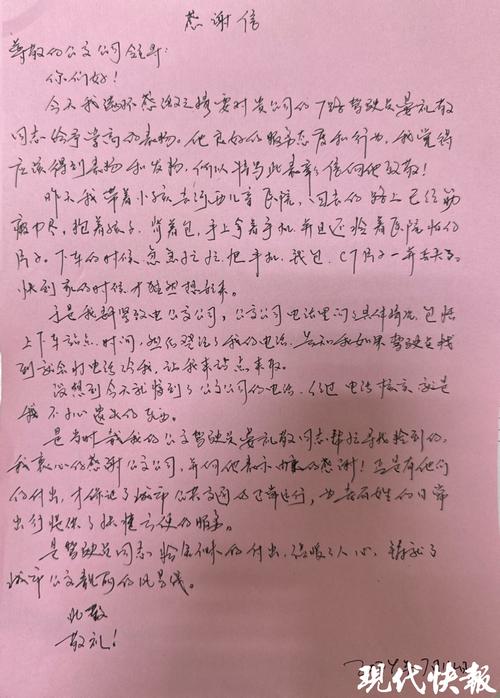 感谢信
尊敬的公交公司领导:
你们好!
今天我满怀感激之情要对贵公司的7路驾驶员 礼敬
同志给予崇高的表扬。他良好的服务态度和行为,我觉得
应该得到表扬和 ,所以特写此表彰信向他致敬!
昨天我带着小孩去河西儿童医院,回去的路上已经筋
疲力尽,抱着孩子,背着包,手上拿着手机并且还拎着医院拍的
片子。下车的时候 忽忙忙把手机、钱包、CT片子一并丢失了。
快到家的时候才猛然想起来。
于是我 致电公交公司,公交公司电话里问了具体情况,包括
上下车站点、时间,然后登记了我的电话,告知我如果驾驶员找
到就会打电话给我,让我来站点来取。
没想到今天就接到了公交公司的电话,经过电话核实就是
我不小心丢失的东西。
是当时载我的公交驾驶员 礼敬同志帮忙寻找捡到的。
我衷心的感谢公交公司,并向他表示由衷的感谢!正是有他们
的付出,才保证了城市公共交通的正常运行,为老百姓的日常
出行提供了快捷方便的服务。
是驾驶员同志拾金不昧的付出,温暖了人心,铸就了
城市公交靓丽的风景线。
此致
敬礼!
现代快报